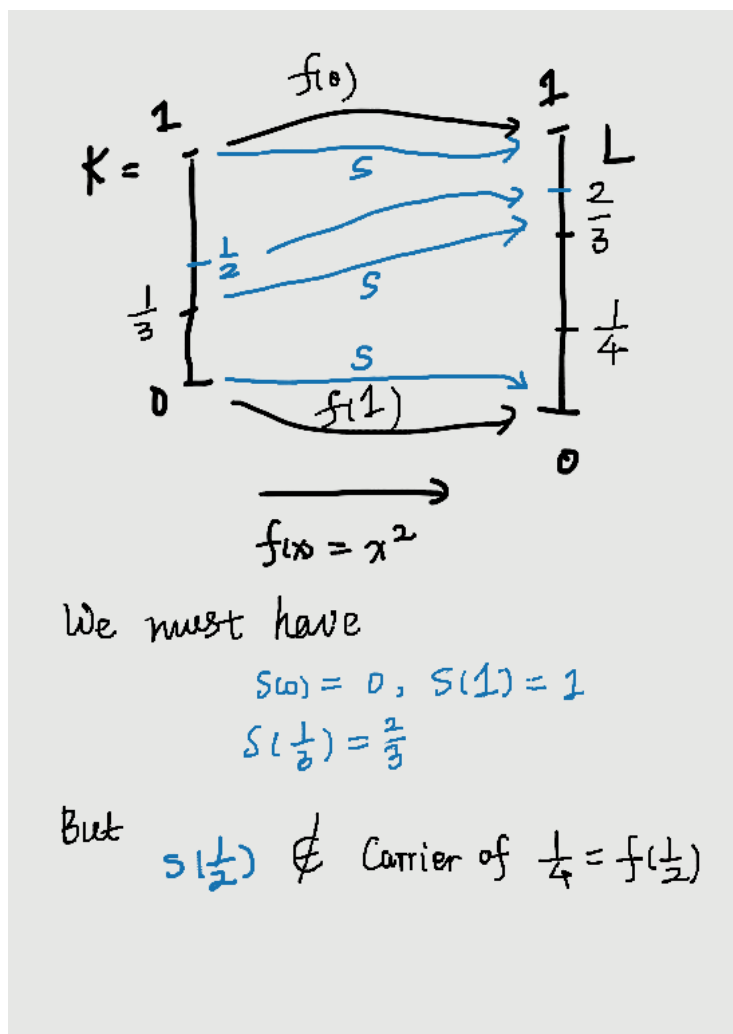 f(0)
1
1
K =
L
S
1/2
2/3
S
1/3
1/4
S
0
f(1)
0
f(x) = x²
We must have
S(0) = 0, S(1) = 1
S(1/3) = 2/3
But
S(1/2) ∉ Carrier of 1/4 = f(1/2)